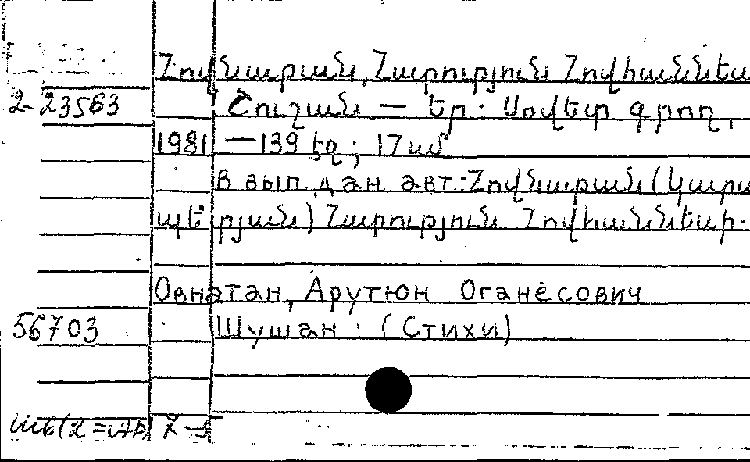 Հովնաթան, Հարություն Հովհաննես
2-23563 Շուշան — Եր.: Սովետ. գրող,
1981 — 139 էջ; 17 սմ
В вып. дан. авт.: Հովնաթան (Կարա
պետյան) Հարություն Հովհաննեսի.
Овнатан, Арутюн Оганесович
56703 Шушан. (Стихи)